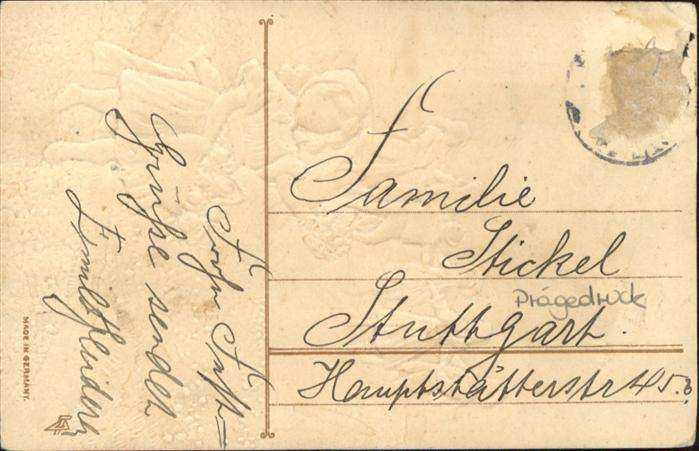 Frohe Fest=
Grüße sendet
Familie
Stickel
Prägedruck
Stuttgart.
Hauptstätterstr 45
MADE IN GERMANY.